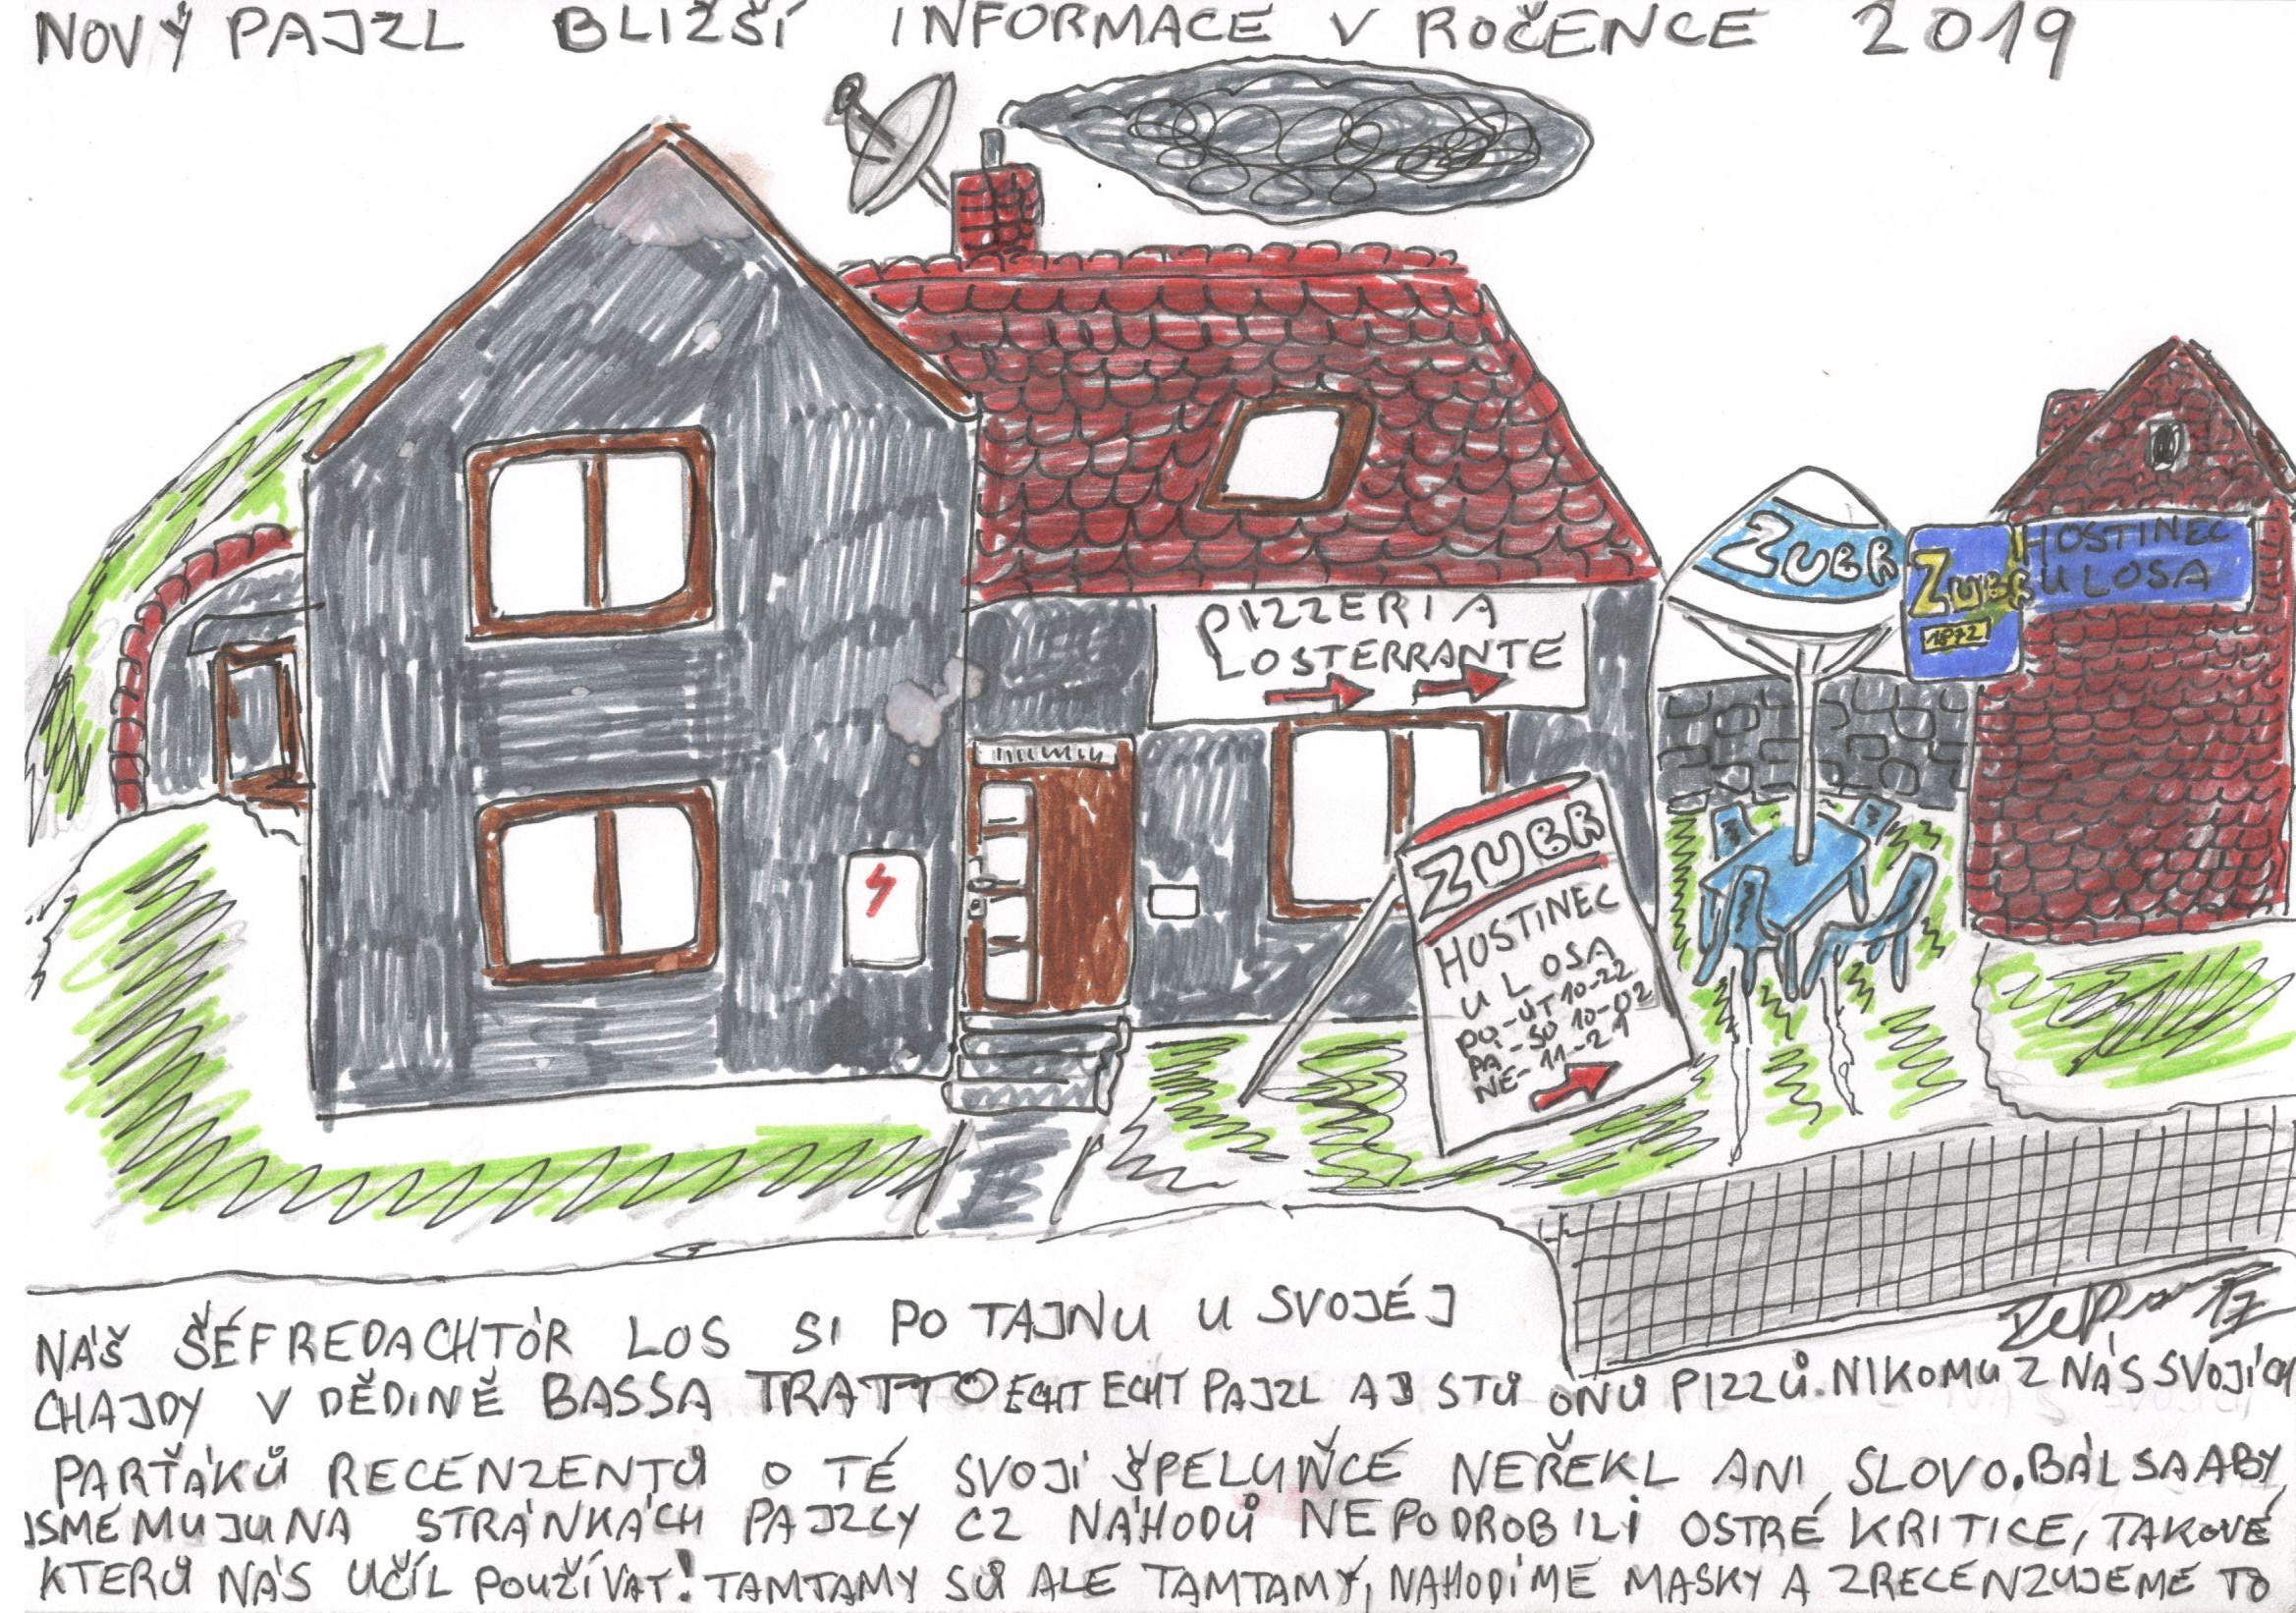 NOVÝ PAJZL BLIŽŠÍ INFORMACE V ROČENCE 2019
PIZZERIA
LOSTERRANTE
ZUBR
ZUBR
1872
HOSTINEC
U LOSA
ZUBR
HOSTINEC
U LOSA
PO-ÚT 10-22
PÁ-SO 10-02
NE-11-21
NÁŠ ŠÉFREDACHTÓR LOS SI PO TAJNU U SVOJÉJ
CHAJDY V DĚDINĚ BASSA TRATTO ECHT ECHT PAJZL AJ S TÚ ONÚ PIZZŮ. NIKOMU Z NÁS SVOJÍCH
PARŤÁKŮ RECENZENTŮ O TÉ SVOJÍ ŠPELUŇCE NEŘEKL ANI SLOVO. BÁL SA ABY
JSME MU JU NA STRÁNKÁCH PAJZLY CZ NÁHODŮ NEPODROBILI OSTRÉ KRITICE, TAKOVÉ
KTERŮ NÁS UČÍL POUŽÍVAT! TAMTAMY SŮ ALE TAMTAMY, NAHODÍME MASKY A ZRECENZUJEME TO